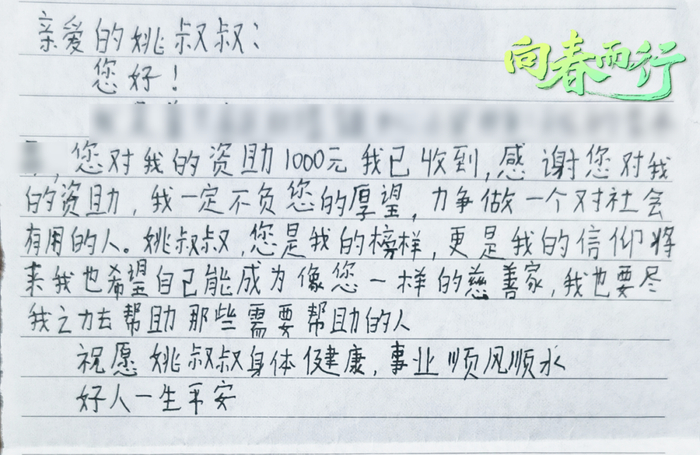 亲爱的姚叔叔：
向春而行
您好！
，您对我的资助1000元我已收到，感谢您对我
的资助，我一定不负您的厚望，力争做一个对社会
有用的人。姚叔叔，您是我的榜样，更是我的信仰将
来我也希望自己能成为像您一样的慈善家，我也要尽
我之力去帮助那些需要帮助的人
祝愿姚叔叔身体健康，事业顺风顺水
好人一生平安